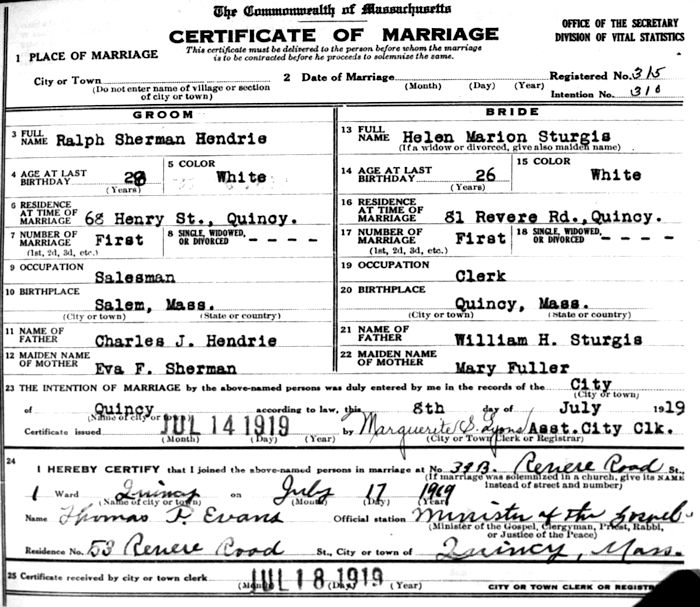 The Commonwealth of Massachusetts
CERTIFICATE OF MARRIAGE
OFFICE OF THE SECRETARY
DIVISION OF VITAL STATISTICS
This certificate must be delivered to the person before whom the marriage
is to be contracted before he proceeds to solemnize the same.
1 PLACE OF MARRIAGE
City or Town
(Do not enter name of village or section
of city or town)
2 Date of Marriage
(Month) (Day) (Year)
Registered No. 315
Intention No. 310
GROOM
BRIDE
3 FULL NAME Ralph Sherman Hendrie
13 FULL NAME Helen Marion Sturgis
(If a widow or divorced, give also maiden name)
4 AGE AT LAST BIRTHDAY 28 (Years)
5 COLOR White
14 AGE AT LAST BIRTHDAY 26 (Years)
15 COLOR White
6 RESIDENCE AT TIME OF MARRIAGE 68 Henry St., Quincy.
16 RESIDENCE AT TIME OF MARRIAGE 81 Revere Rd., Quincy.
7 NUMBER OF MARRIAGE First (1st, 2d, 3d, etc.)
8 SINGLE, WIDOWED, OR DIVORCED - - - -
17 NUMBER OF MARRIAGE First (1st, 2d, 3d, etc.)
18 SINGLE, WIDOWED, OR DIVORCED - - - -
9 OCCUPATION Salesman
19 OCCUPATION Clerk
10 BIRTHPLACE Salem, Mass.
(City or town) (State or country)
20 BIRTHPLACE Quincy, Mass.
(City or town) (State or country)
11 NAME OF FATHER Charles J. Hendrie
21 NAME OF FATHER William H. Sturgis
12 MAIDEN NAME OF MOTHER Eva F. Sherman
22 MAIDEN NAME OF MOTHER Mary Fuller
23 THE INTENTION OF MARRIAGE by the above-named persons was duly entered by me in the records of the City
(City or town)
of Quincy according to law, this 8th day of July 1919
(Name of city or town)
Certificate issued JUL 14 1919 by Marguerite S. Lyons Asst. City Clk.
(Month) (Day) (Year) (City or Town Clerk or Registrar)
24
I HEREBY CERTIFY that I joined the above-named persons in marriage at No. 39B. Revere Road St.,
(If marriage was solemnized in a church, give its NAME
instead of street and number)
1 Ward Quincy on July 17 1919
(Name of city or town) (Month) (Day) (Year)
Name Thomas P. Evans Official station Minister of the Gospel
(Minister of the Gospel, Clergyman, Priest, Rabbi,
or Justice of the Peace)
Residence No. 53 Revere Road St., City or town of Quincy, Mass.
25 Certificate received by city or town clerk JUL 18 1919
(Month) (Day) (Year)
CITY OR TOWN CLERK OR REGISTR